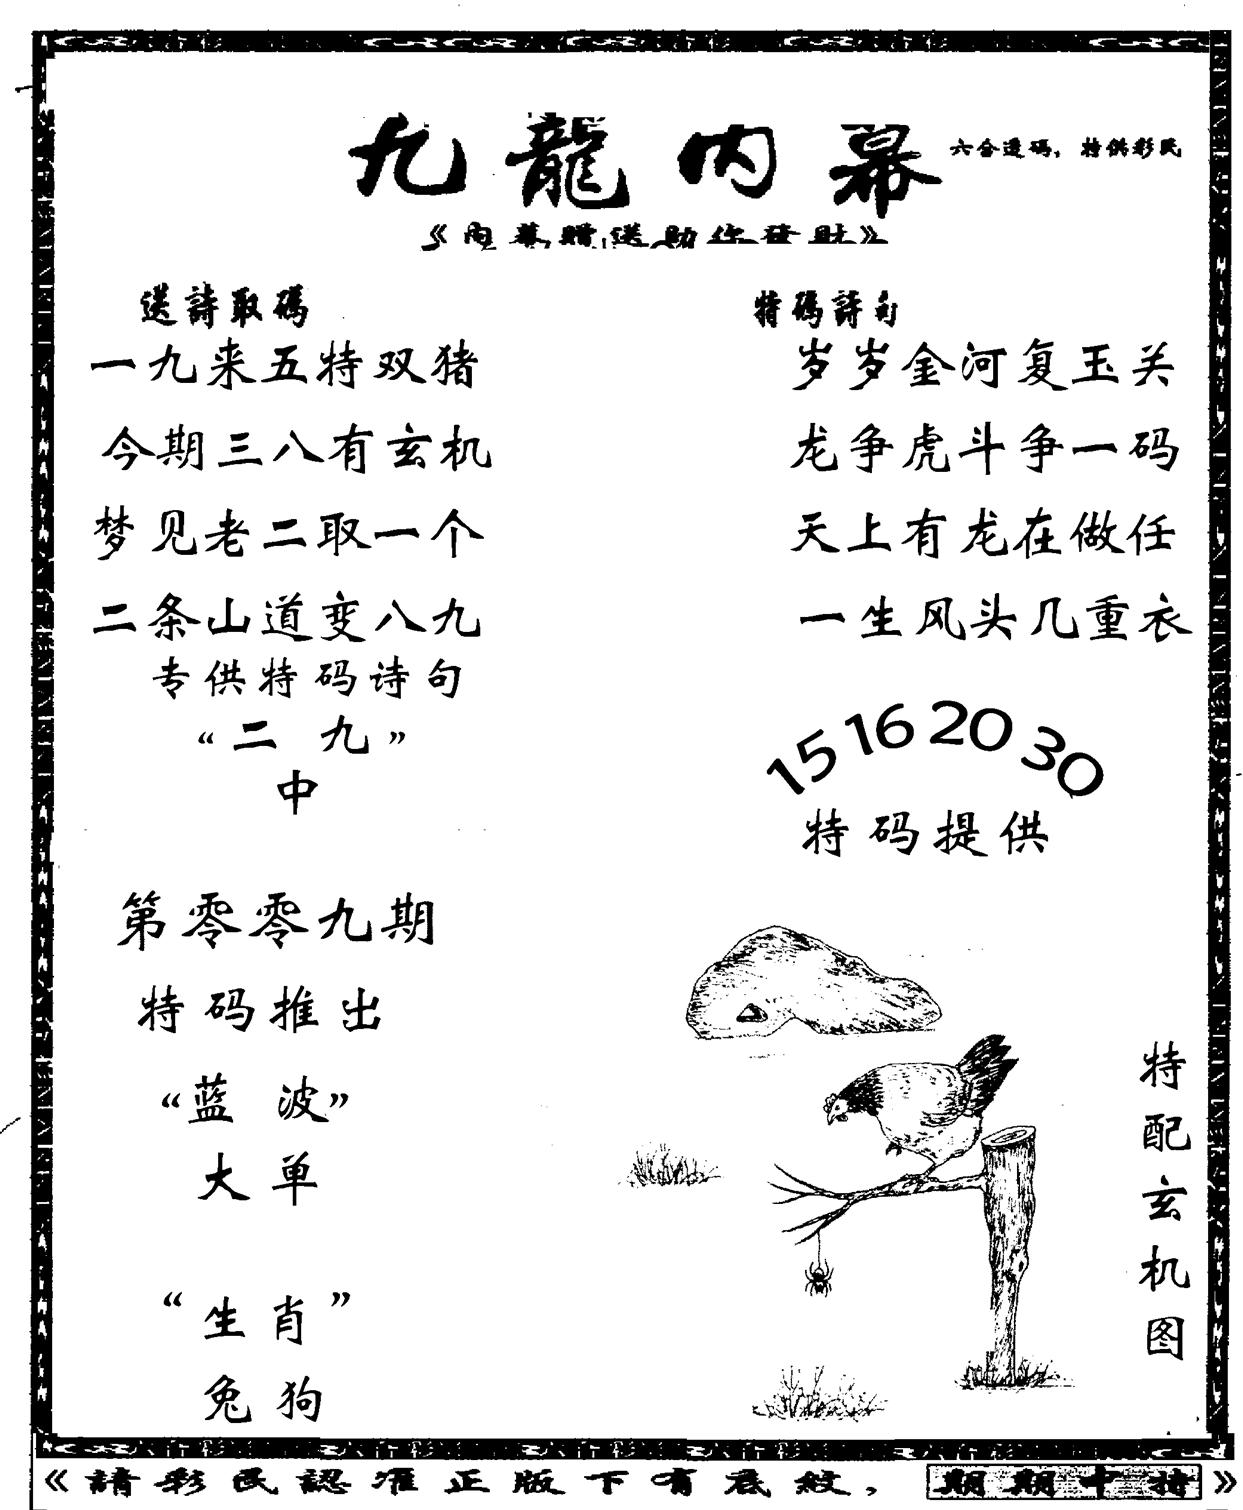 九龍内幕
六合透码，特供彩民
《内幕贈送助你發財》
送詩取碼
一九来五特双猪
今期三八有玄机
梦见老二取一个
二条山道变八九
专供特码诗句
“二九”
中
第零零九期
特码推出
“蓝波”
大单
“生肖”
兔狗
特碼詩句
岁岁金河复玉关
龙争虎斗争一码
天上有龙在做任
一生风头几重衣
15 16 20 30
特码提供
特配玄机图
《請彩民認准正版下有底紋，期期中特》